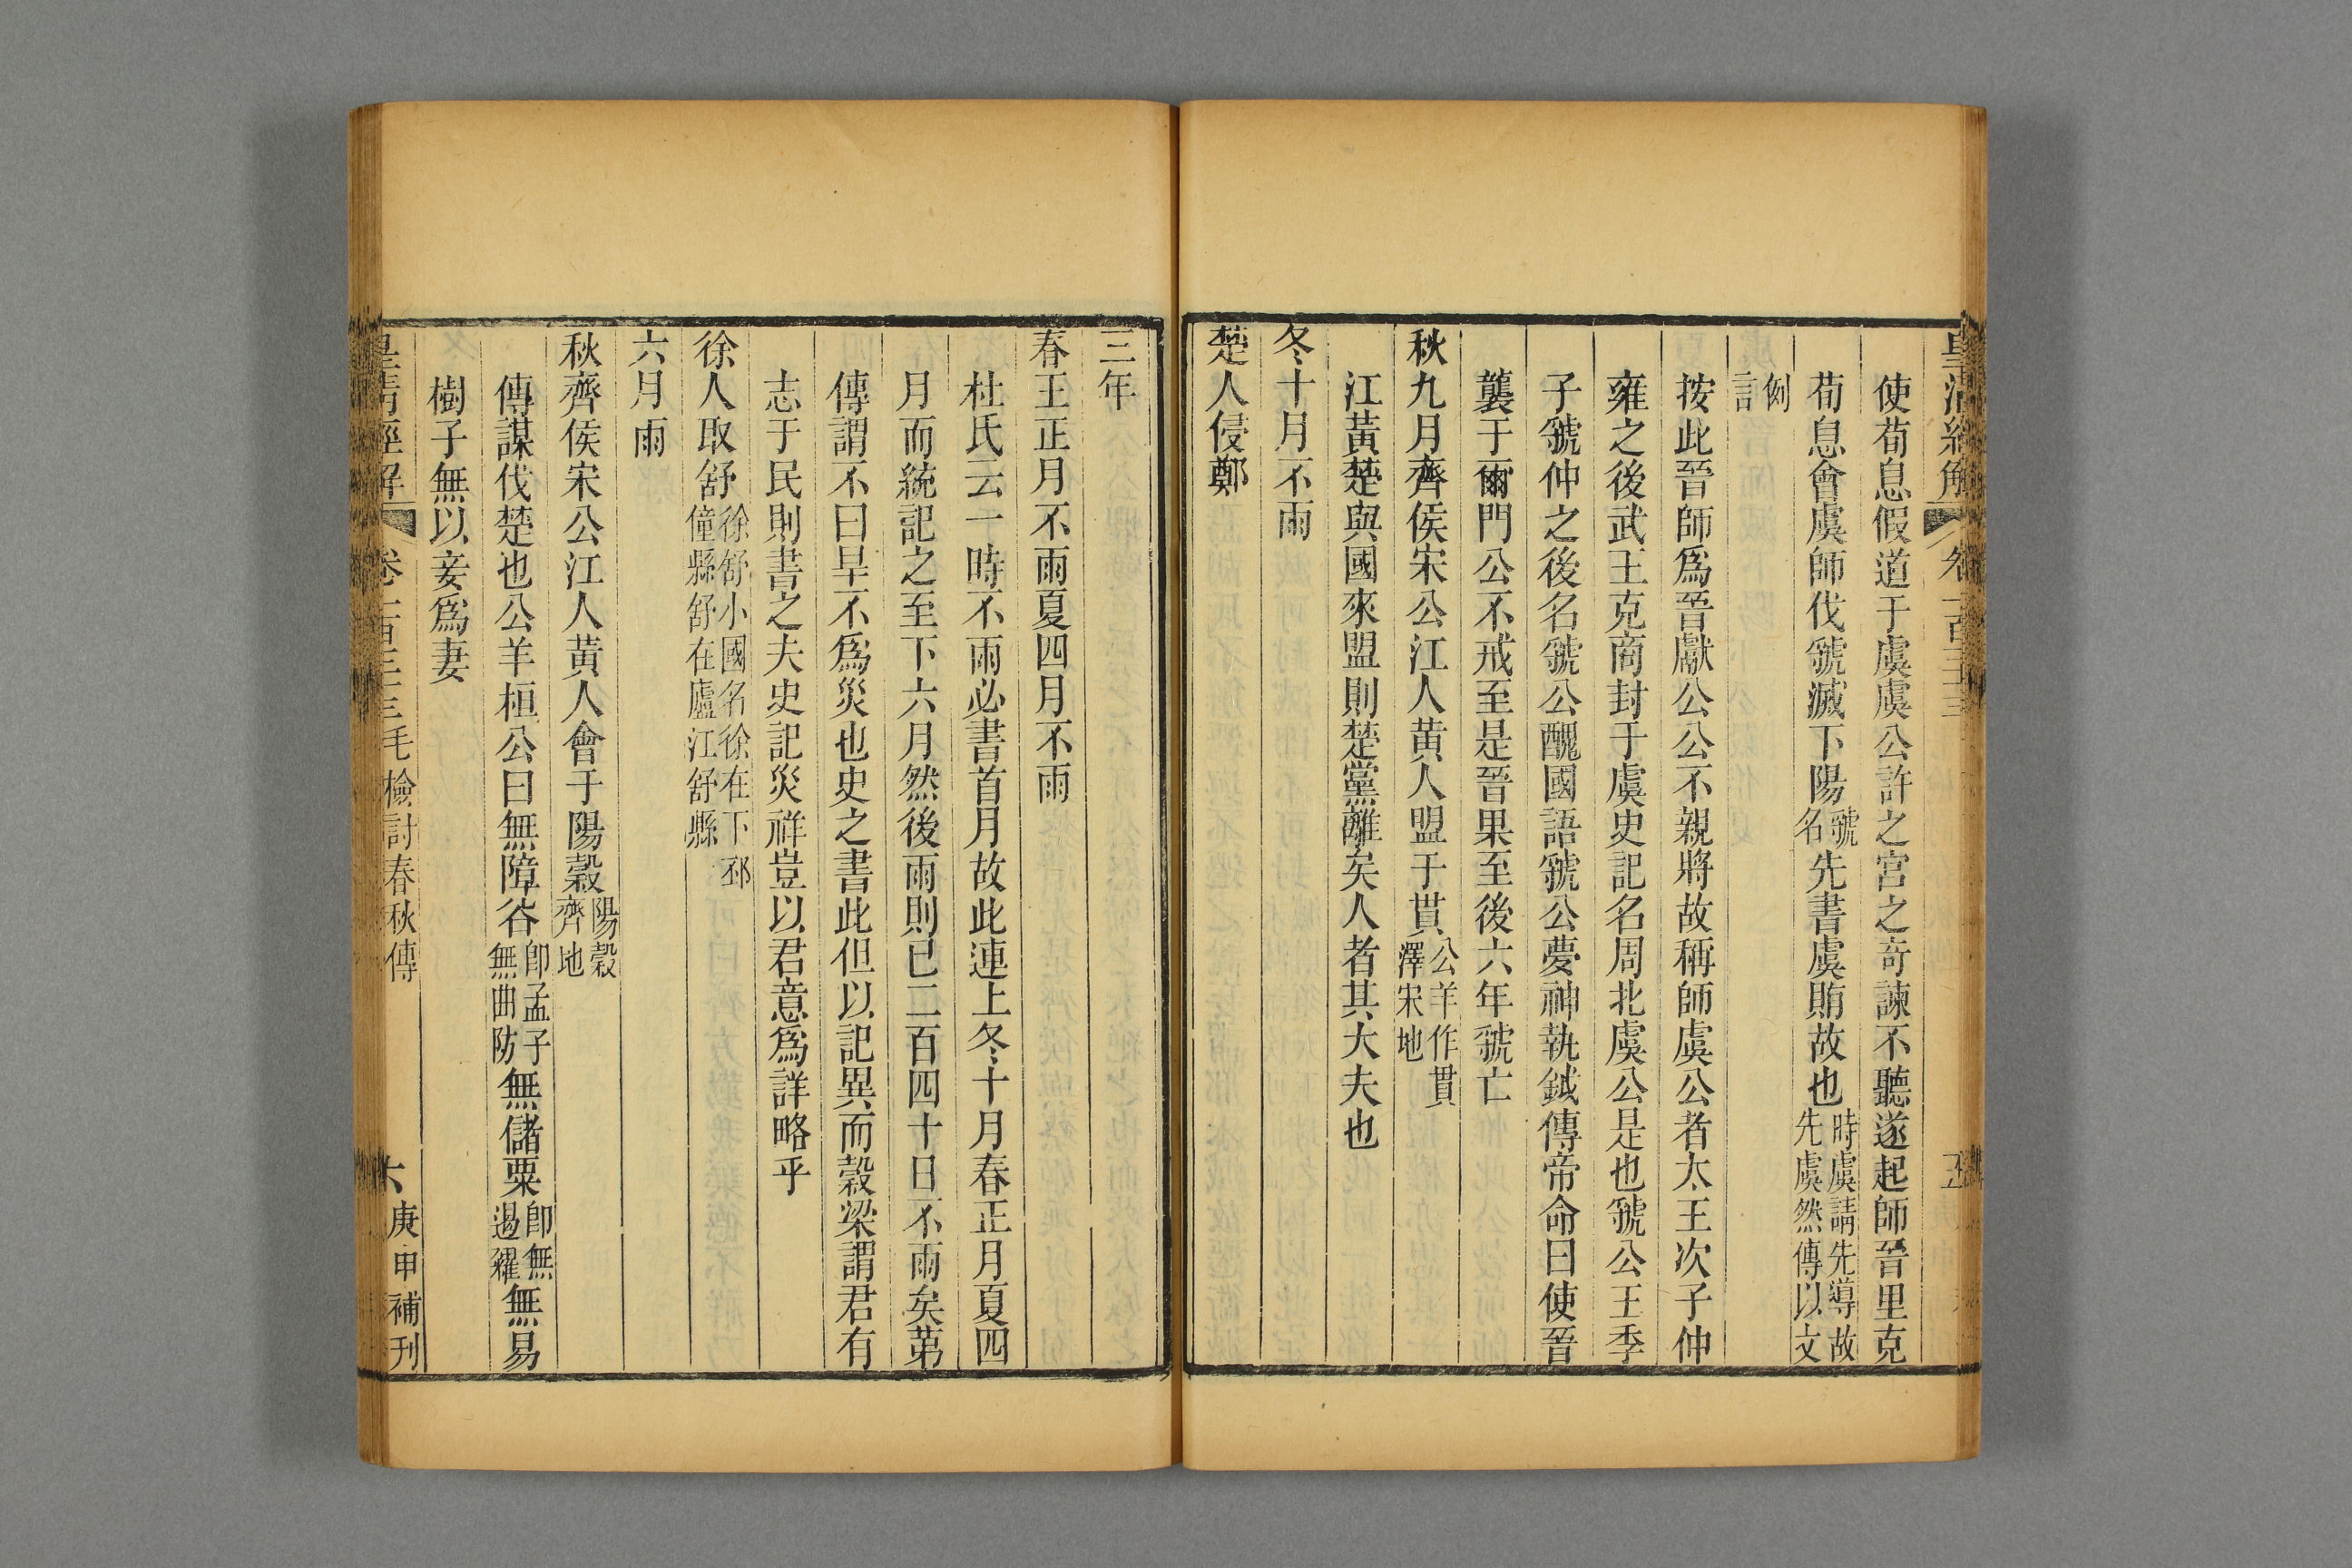 皇清經解 卷一百三十三 五
使荀息假道于虞虞公許之宮之奇諫不聽遂起師晉里克
荀息會虞師伐虢滅下陽虢名先書虞賄故也時虞請先導故先虞然傳以文
例言
按此晉師爲晉獻公公不親將故稱師虞公者太王次子仲
雍之後武王克商封于虞史記名周北虞公是也虢公王季
子虢仲之後名虢公醜國語虢公夢神執鉞傳帝命曰使晉
襲于爾門公不戒至是晉果至後六年虢亡
秋九月齊侯宋公江人黃人盟于貫公羊作貫澤宋地
江黃楚與國來盟則楚黨離矣人者其大夫也
冬十月不雨
楚人侵鄭
三年
春王正月不雨夏四月不雨
杜氏云一時不雨必書首月故此連上冬十月春正月夏四
月而統記之至下六月然後雨則已二百四十日不雨矣苐
傳謂不曰旱不爲災也史之書此但以記異而穀梁謂君有
志于民則書之夫史記災祥豈以君意爲詳略乎
徐人取舒徐舒小國名徐在下邳僮縣舒在廬江舒縣
六月雨
秋齊侯宋公江人黃人會于陽穀陽穀齊地
傳謀伐楚也公羊桓公曰無障谷卽孟子無曲防無儲粟卽無遏糴無易
樹子無以妾爲妻
皇清經解 卷一百三十三 毛檢討春秋傳 六 庚申補刊